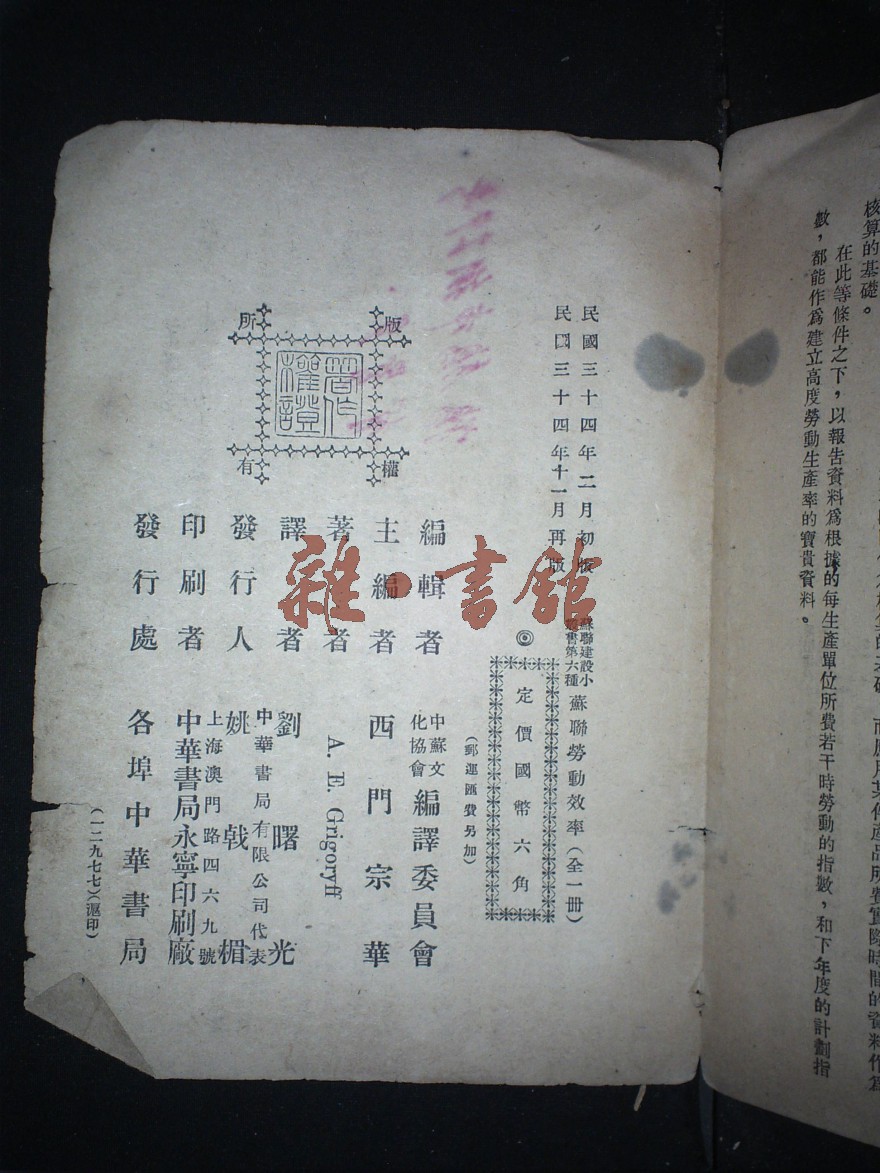 核算的基礎。
在此等條件之下，以報告資料爲根據的每生產單位所費若干時勞動的指數，和下年度的計劃指
數，都能作爲建立高度勞動生產率的寶貴資料。
民國三十四年二月初版
民國三十四年十一月再版
蘇聯建設小
叢書第六種
蘇聯勞動效率（全一冊）
◎
定價國幣六角
（郵運匯費另加）
版
權
所
有
著作
權證
編輯者
中蘇文
化協會
編譯委員會
主編者 西門宗華
著者 A. E. Grigoryff
譯者 劉曙光
發行人
中華書局有限公司代表
姚戟楣
印刷者
上海澳門路四六九號
中華書局永寧印刷廠
發行處 各埠中華書局
（一二九七七）（滬印）
雜·書館